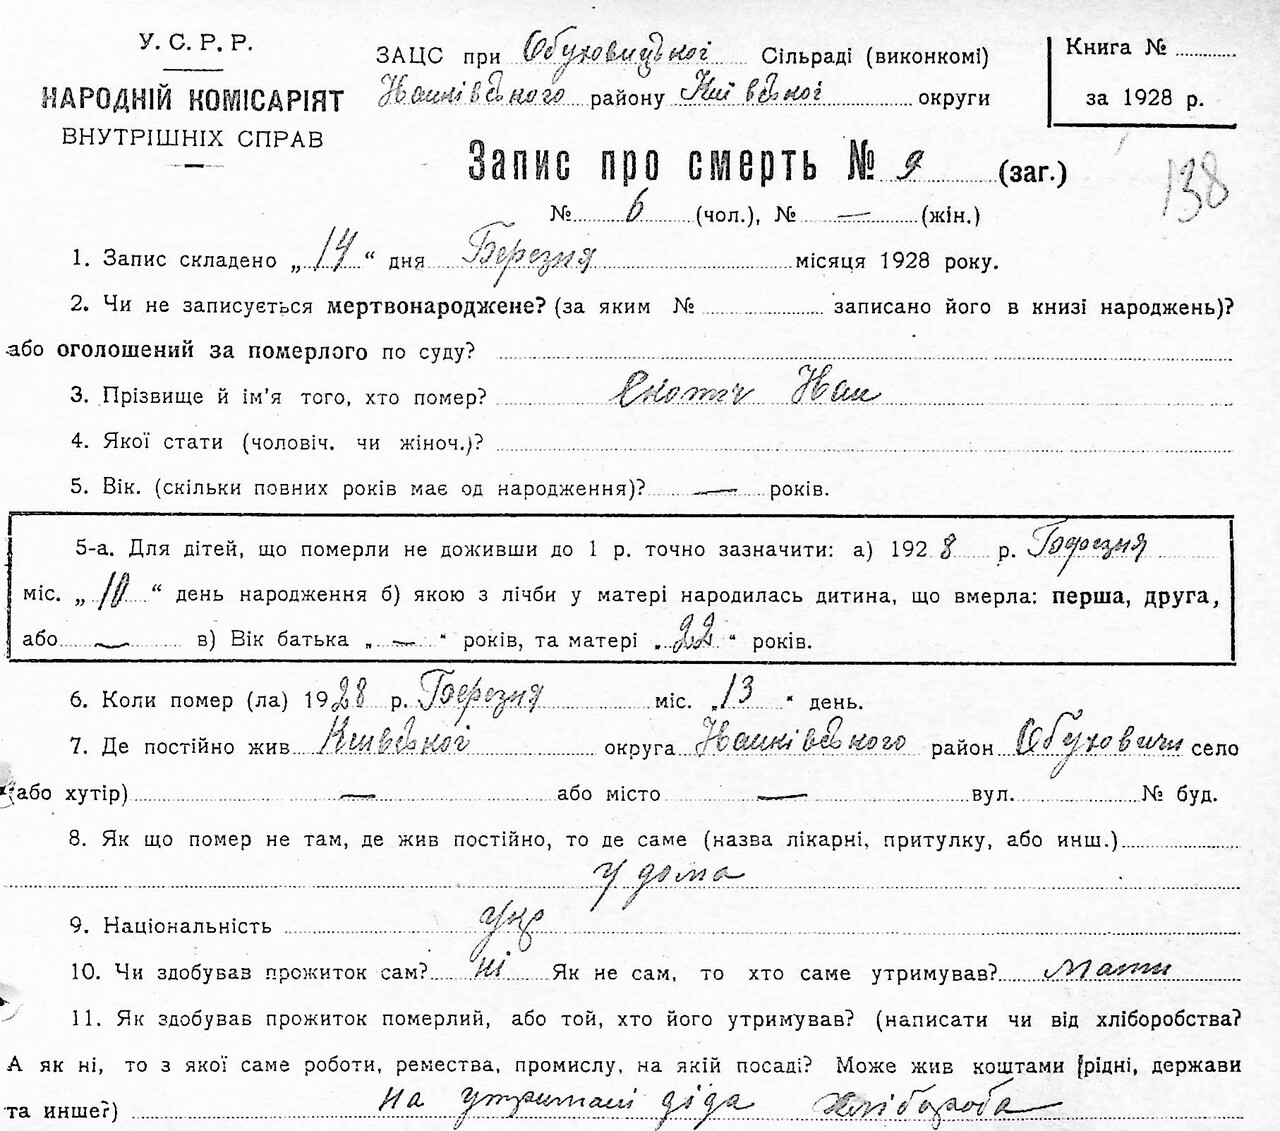 У. С. Р. Р.
НАРОДНІЙ КОМІСАРІЯТ
ВНУТРІШНІХ СПРАВ
ЗАЦС при Обуховицької Сільраді (виконкомі)
району Київської округи
Книга №
за 1928 р.
Запис про смерть № 9 (заг.)
138
№ 6 (чол.), № — (жін.)
1. Запис складено „14“ дня Березня місяця 1928 року.
2. Чи не записується мертвонароджене? (за яким № записано його в книзі народжень)?
або оголошений за померлого по суду?
3. Прізвище й ім'я того, хто помер?
4. Якої стати (чоловіч. чи жіноч.)?
5. Вік. (скільки повних років має од народження)? — років.
5-а. Для дітей, що померли не доживши до 1 р. точно зазначити: а) 1928 р. Березня
міс. „10“ день народження б) якою з лічби у матері народилась дитина, що вмерла: перша, друга,
або — в) Вік батька „—“ років, та матері „22“ років.
6. Коли помер (ла) 1928 р. Березня міс. „13“ день.
7. Де постійно жив Київської округа район Обуховичи село
(або хутір) — або місто — вул. № буд.
8. Як що помер не там, де жив постійно, то де саме (назва лікарні, притулку, або инш.)
у дома
9. Національність укр
10. Чи здобував прожиток сам? ні Як не сам, то хто саме утримував? мати
11. Як здобував прожиток померлий, або той, хто його утримував? (написати чи від хліборобства?
А як ні, то з якої саме роботи, ремества, промислу, на якій посаді? Може жив коштами рідні, держави
та инше?) на утримані діда хлібороба